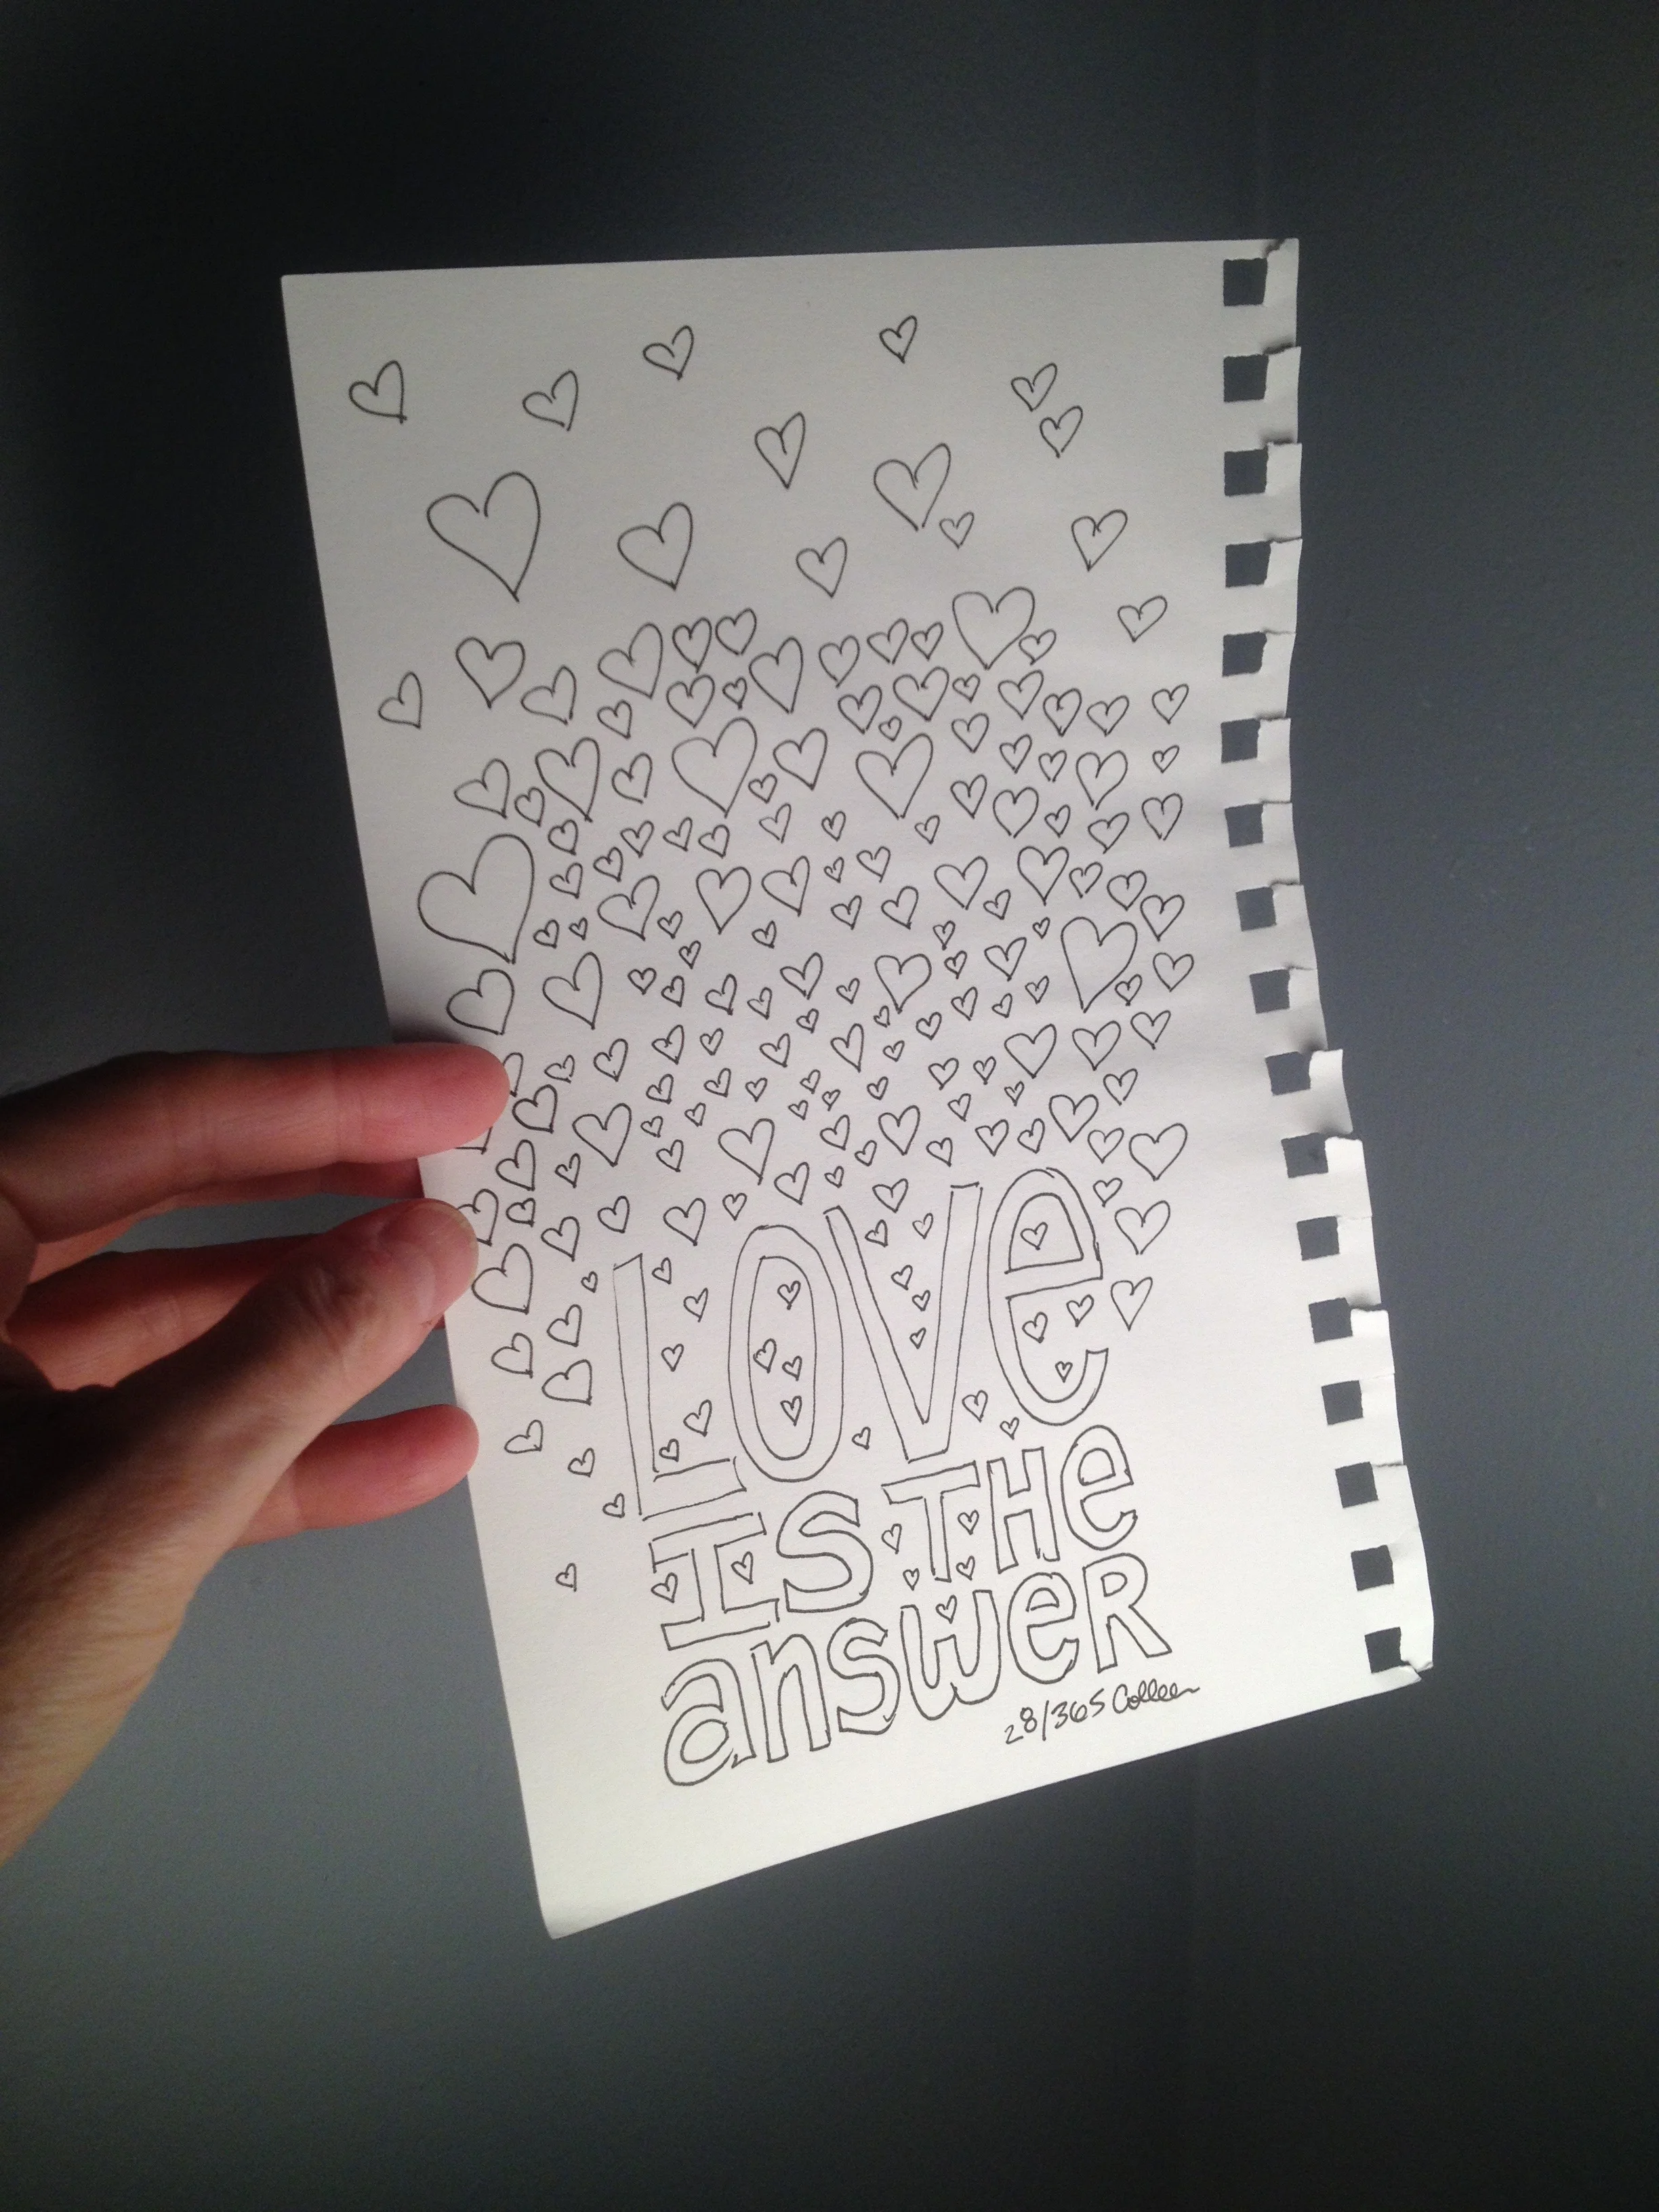 LOVe
IS THe
answeR
28/365 Colleen